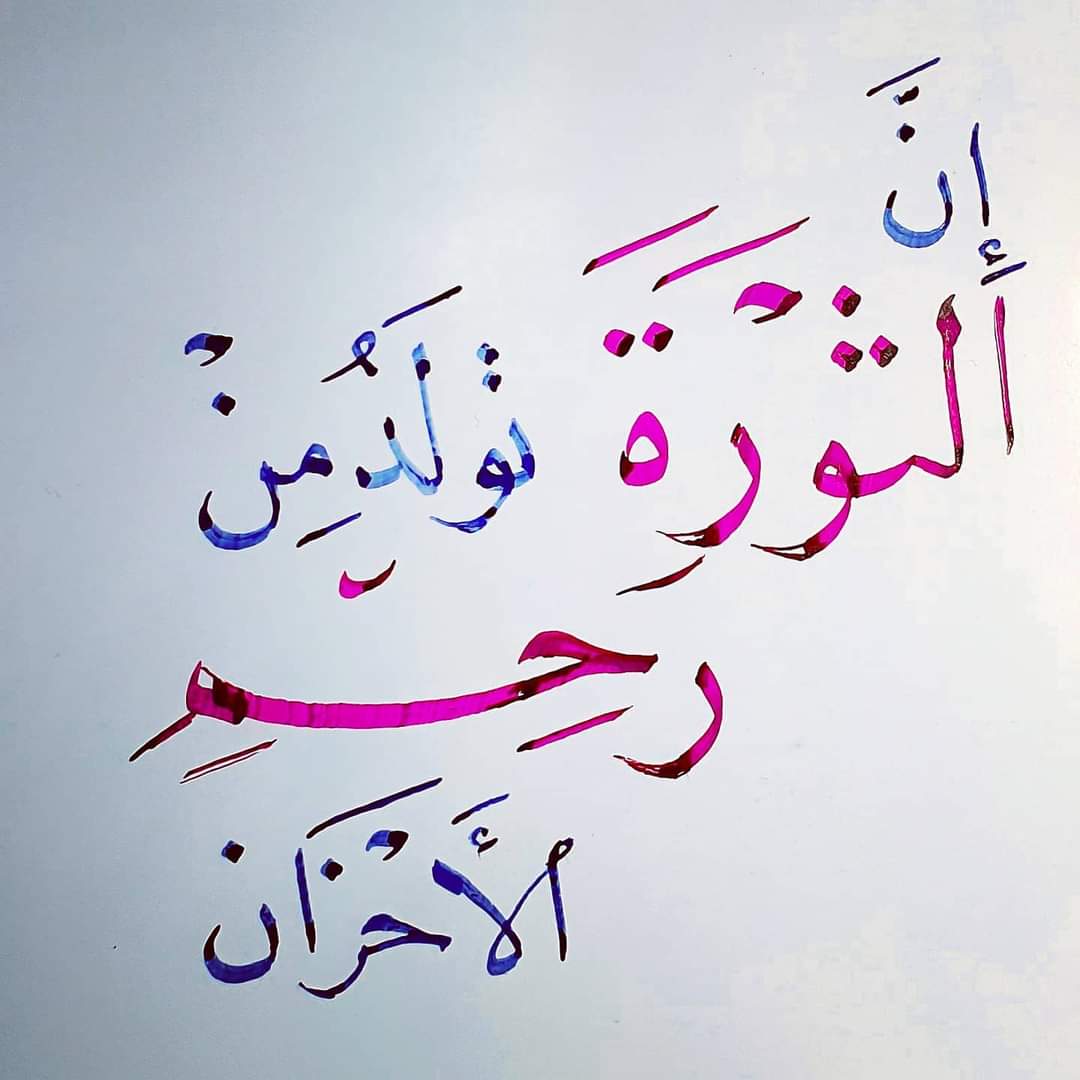 إنَّ
الثوْرَةَ تولَدُ مِنْ
رحِمِ
الأَحْزَان